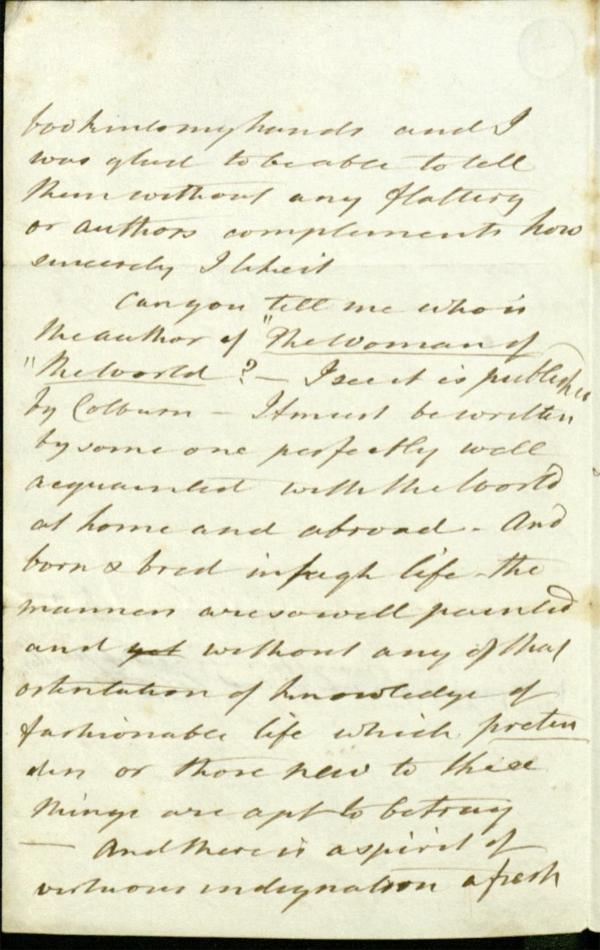 book into my hands and I
was glad to be able to tell
them without any flattery
or authors complements how
sincerely I like it
Can you tell me who is
the author of "The Woman of
"the World"? — I see it is published
by Colburn — It must be written
by some one perfectly well
acquainted with the World
at home and abroad - And
born & bred in high life - the
manners are so well painted
and yet without any of that
ostentation of knowledge of
fashionable life which preten
ders or those new to these
things are apt to betray
— And there is a spirit of
virtuous indignation a fresh